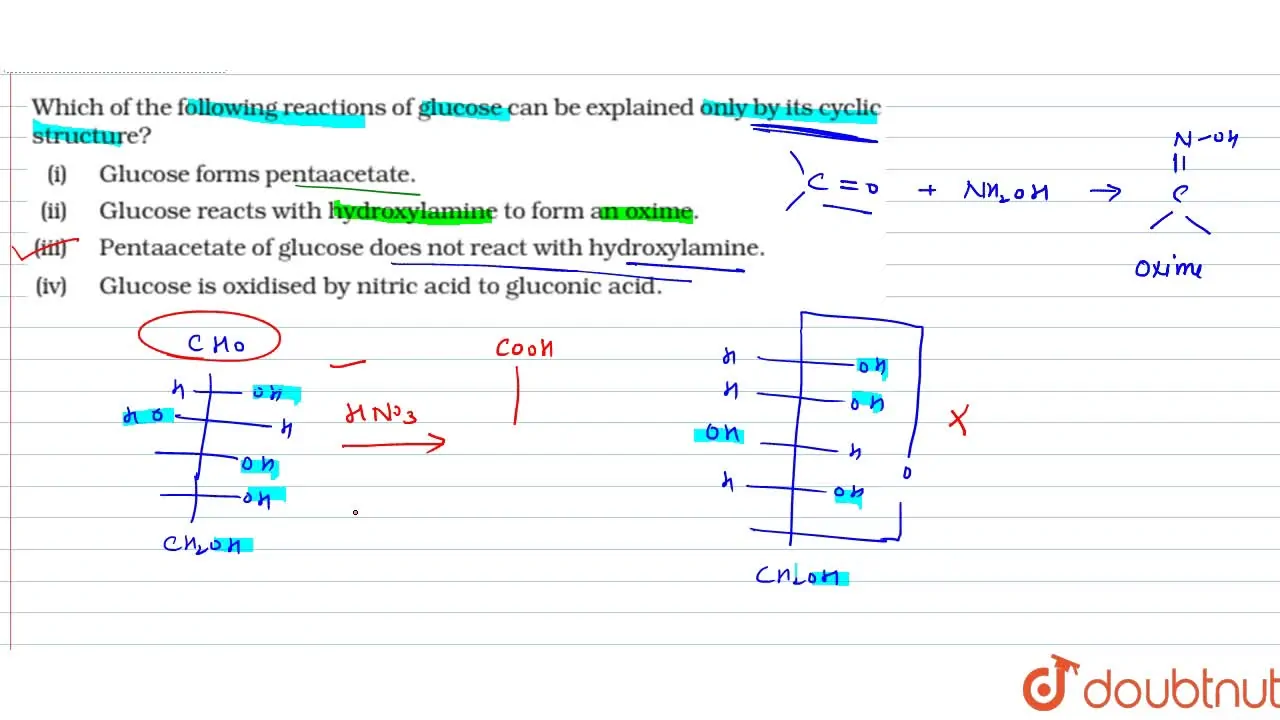 Which of the following reactions of glucose can be explained only by its cyclic
structure?
(i) Glucose forms pentaacetate.
(ii) Glucose reacts with hydroxylamine to form an oxime.
(iii) Pentaacetate of glucose does not react with hydroxylamine.
(iv) Glucose is oxidised by nitric acid to gluconic acid.
N-OH
||
C = O + NH2OH → C
Oxime
CHO
H OH
HO H
OH
OH
CH2OH
HNO3
COOH
H OH
H OH
OH H
H OH
O
CH2OH
X
doubtnut